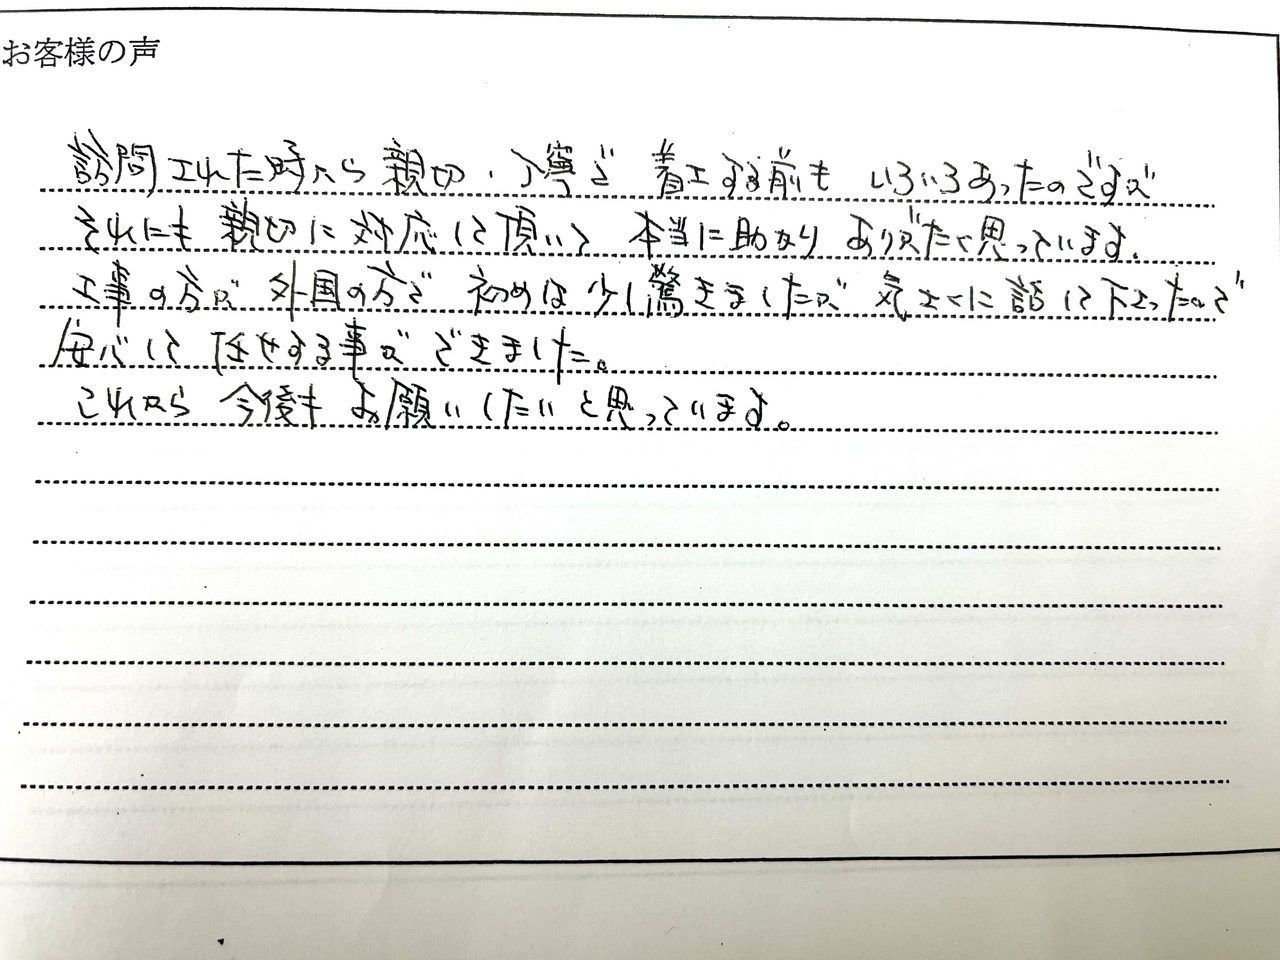 お客様の声
訪問された時から親切、丁寧で 着工する前も いろいろあったのですが
それにも 親切に 対応して頂いて 本当に助かり ありがたく思っています。
工事の方が 外国の方で 初めは少し驚きましたが 気さくに話して下さったので
安心して 任せする事が できました。
これから 今後も お願いしたいと思っています。